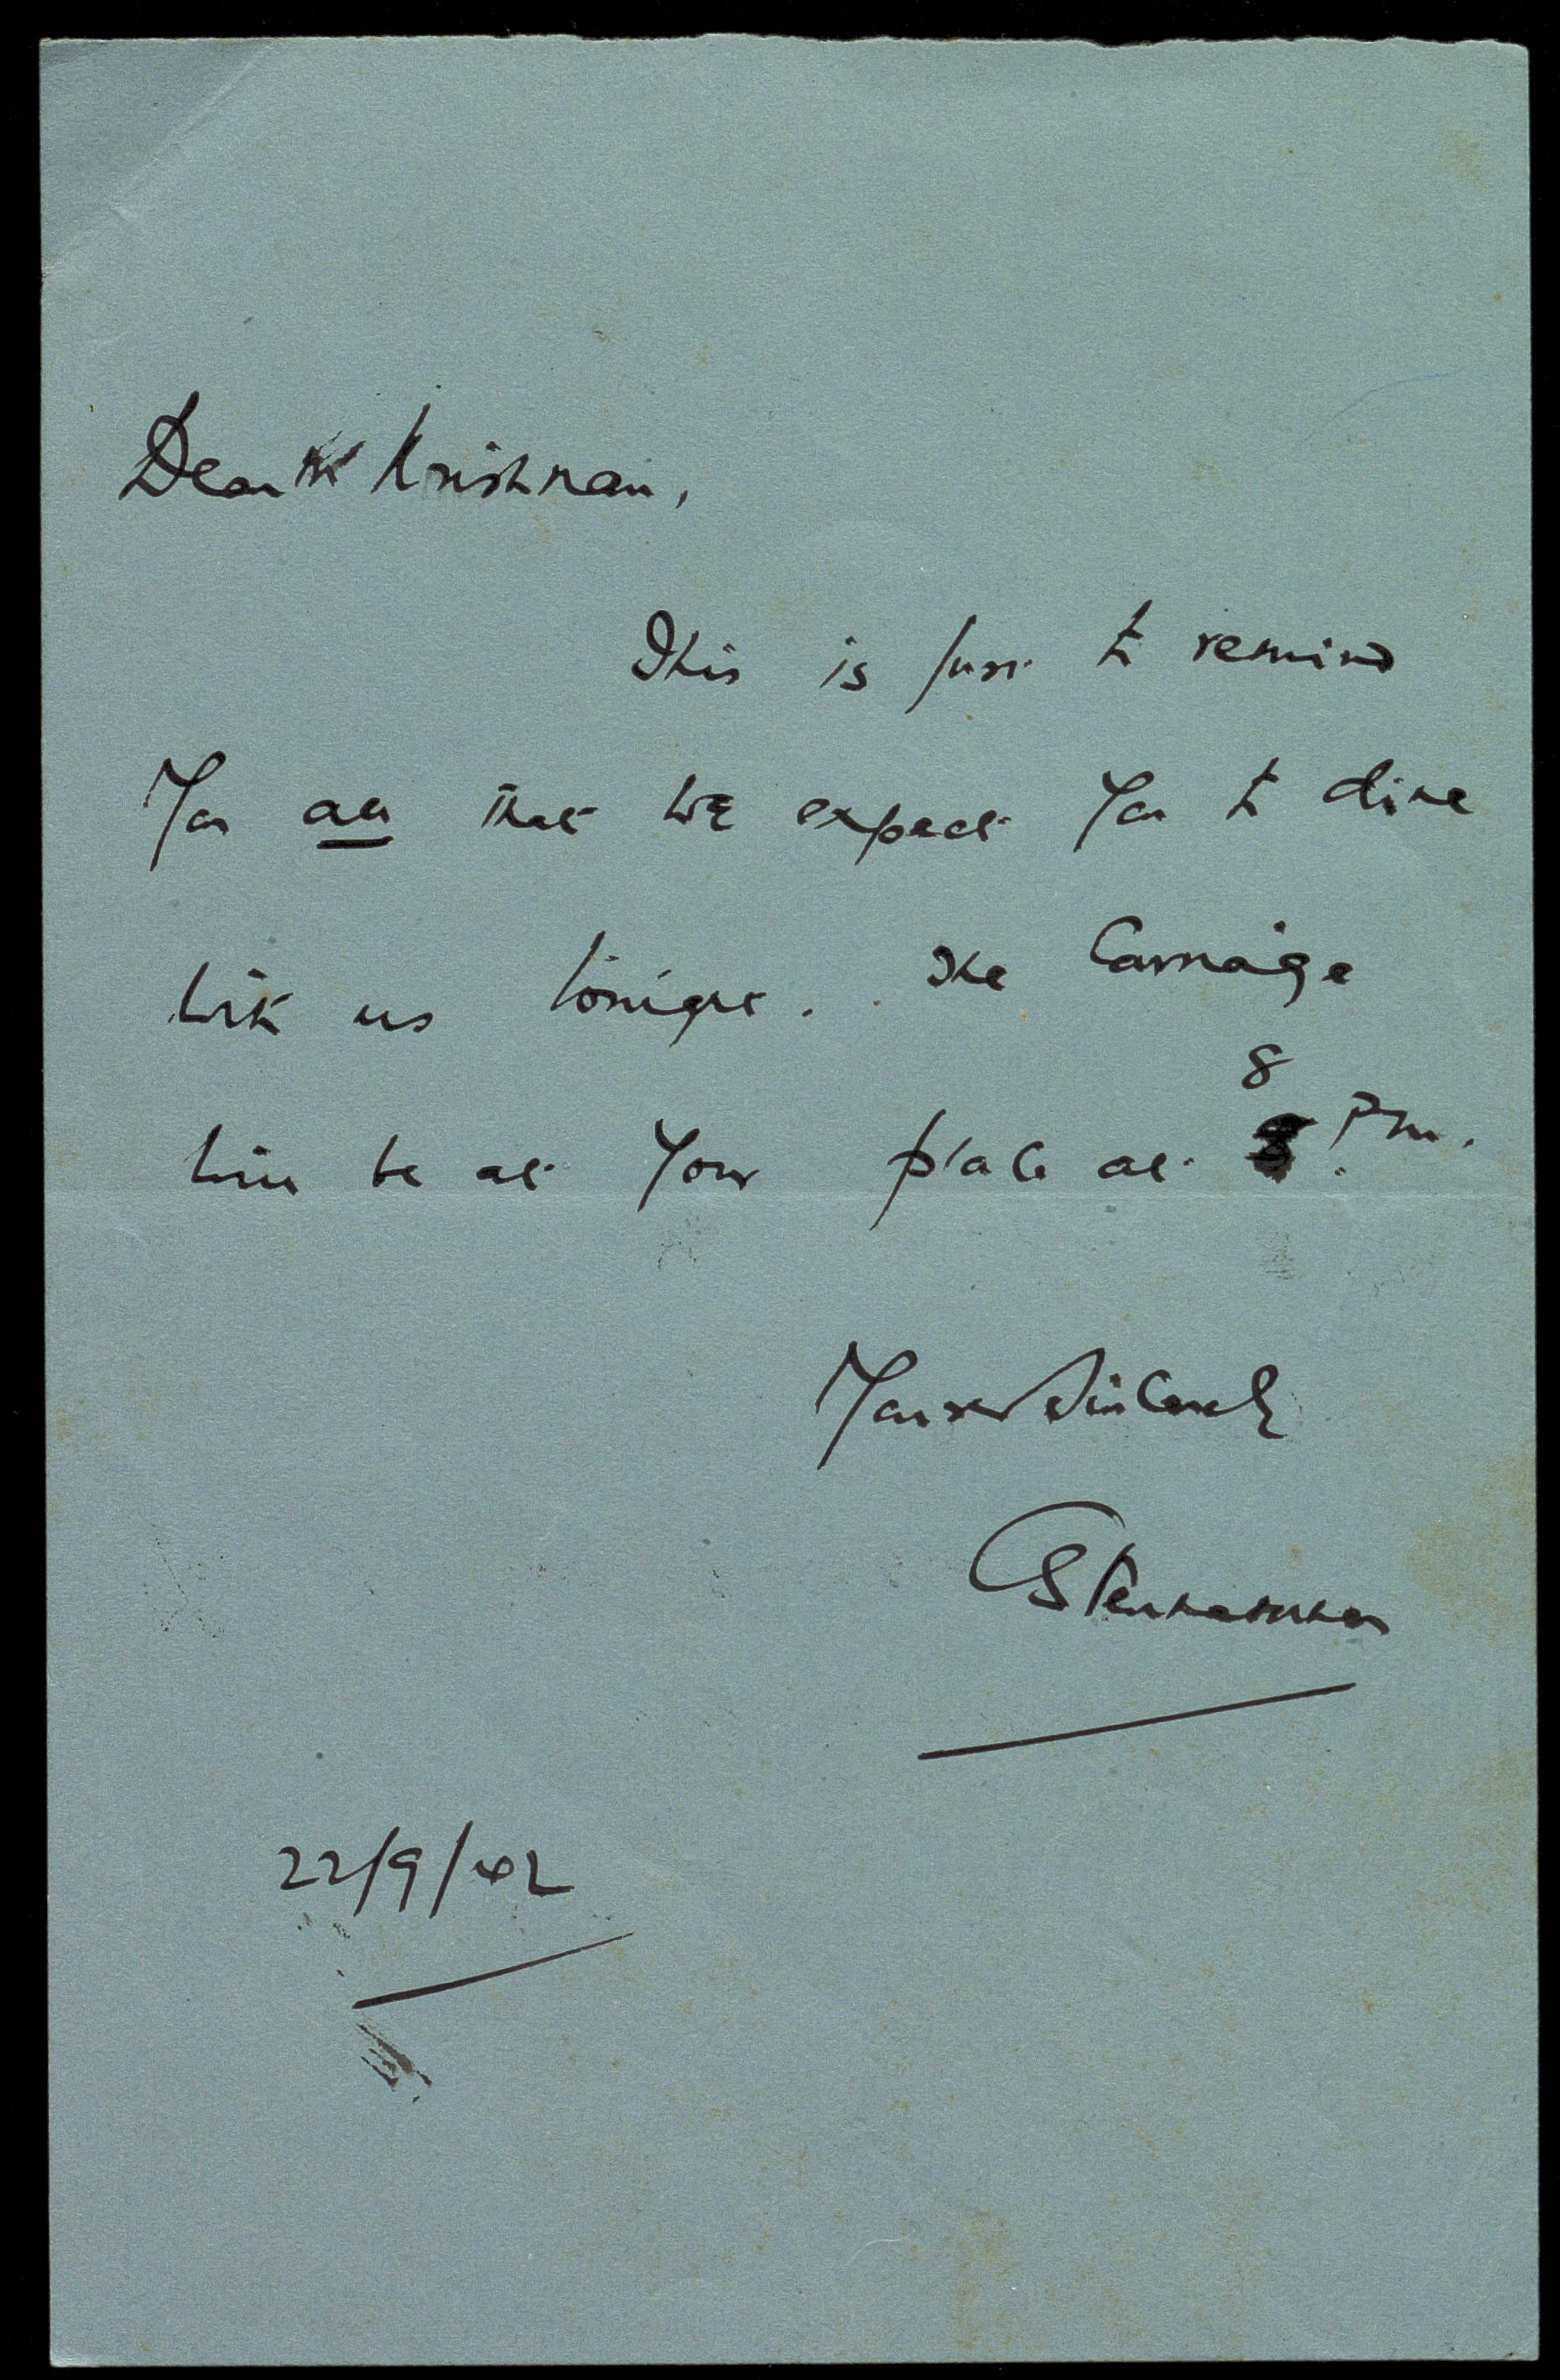 Dear Mr Krishnan,
This is just to remind
You all that we expect You to dine
with us tonight. The Carriage
will be at Your place at 8 P.m.
Yours Sincerely
22/9/42